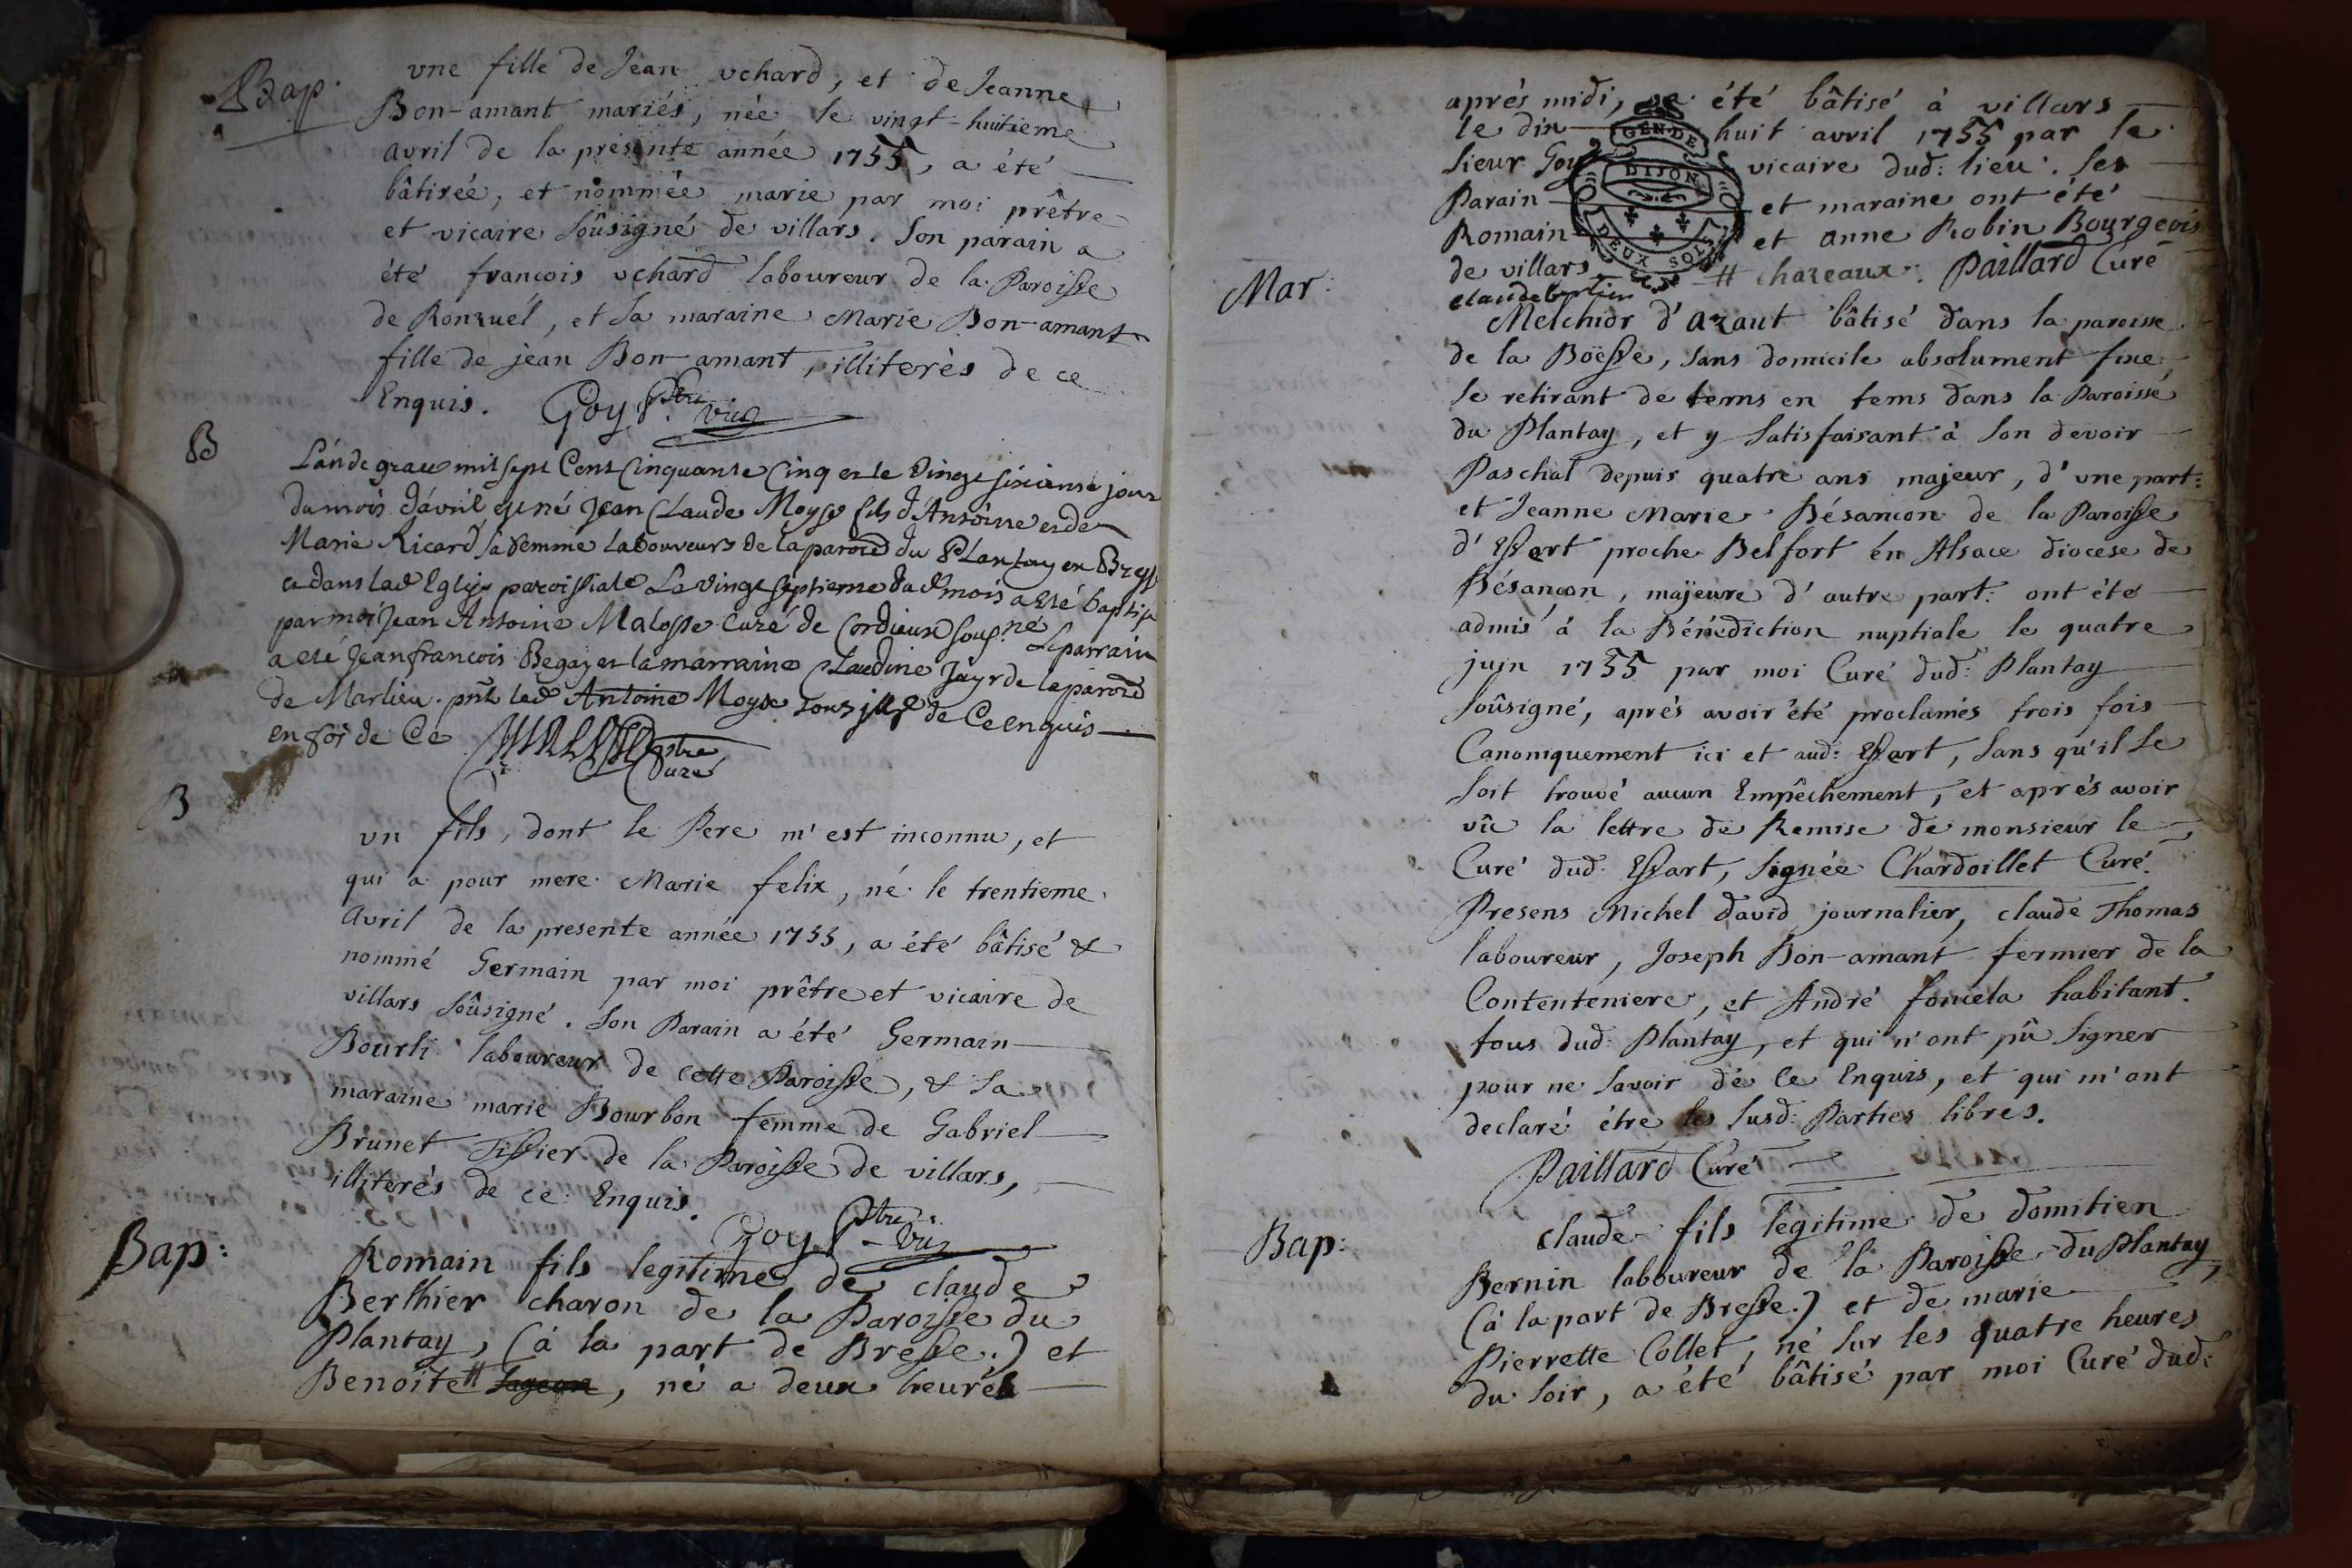 Bap.
une fille de Jean uchard, et de Jeanne
Bon-amant mariés, née le vingt-huitieme
avril de la présente année 1755, a été
bâtisée, et nommée marie par moi prêtre
et vicaire soûsigné de villars. son parain a
été francois uchard laboureur de la Paroisse
de Ronzuél, et sa maraine Marie Bon-amant
fille de jéan Bon-amant, illiterés de ce
Enquis. Goy Ptre vic
B
L'an de grace mil sept Cent Cinquante Cinq et le vingt sixieme jour
du mois d'avril est né Jean Claude Moyse fils d'Antoine et de
Marie Ricard sa femme Laboureurs de la paroisse du Plantay en Bresse
et dans lad Eglise paroissiale Le vingt septieme dud mois a Eté baptisé
par moi Jean Antoine Malosse Curé de Cordieux sousné Le parrain
a eté Jean francois Begay et la marraine Claudine Jayr de la paroisse
de Marlieu. pnt led Antoine Moyse tous ill de Ce enquis
en foi de Ce ptre
Curé
B
un fils, dont le Pere m'est inconnu, et
qui a pour mere Marie felix, né le trentieme
avril de la presente année 1755, a été bâtisé &
nommé Germain par moi prêtre et vicaire de
villars soûsigné. son Parain a été Germain
Bourli laboureur de cette Paroisse, & sa
maraine marie Bourbon femme de Gabriel
Brunet Tissier de la Paroisse de villars,
illiterés de ce Enquis.
Goy Ptre Vic
Bap:
Romain fils legitime de claude
Berthier charon de la Paroisse du
Plantay, (à la part de Bresse.) et
Benoite # , né a deux heurés
aprés midi, a été bâtisé à villars
le dix GEN DE huit avril 1755 par le
sieur Goy DIJON vicaire dud: lieu. ses
Parain et maraine ont été
Romain DEUX SOLS et anne Robin Bourgeois
de villars # chazeaux. Paillard Curé
claude bertier
Mar:
Melchior d'azaut bâtisé dans la paroisse
de la Boësse, sans domicile absolument fixe,
se retirant de tems en tems dans la Paroisse
du Plantay, et y satisfaisant à son devoir
Paschal depuis quatre ans majeur, d'une part:
et Jeanne Marie Bésancon de la Paroisse
d'Essert proche Belfort én Alsace diocese de
Bésançon, majeure d'autre part: ont été
admis à la Bénédiction nuptiale le quatre
juin 1755 par moi Curé dud: Plantay
soûsigné, aprés avoir été proclamés trois fois
Canoniquement ici et aud: Essert, sans qu'il se
soit trouvé aucun Empêchement, et aprés avoir
vû la lettre de Remise de monsieur le
Curé dud: Essart, signée Chardoillet Curé.
Presens Michel david journalier, claude Thomas
laboureur, Joseph Bon-amant fermier de la
Contenteniere, et André foncela habitant.
tous dud: Plantay, et qui n'ont pû signer
pour ne savoir de ce Enquis, et qui m'ont
declaré étre les susd: Parties libres.
Paillard Curé
Bap:
claude fils legitime de domitien
Bernin laboureur de la Paroisse du Plantay,
(à la part de Bresse.) et de marie
Pierrette Collet, né sur les quatre heures
du soir, a été bâtisé par moi Curé dud: